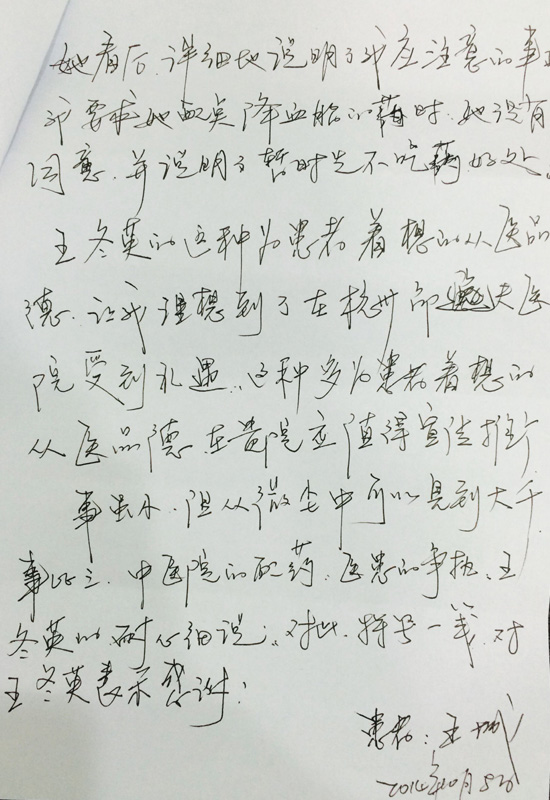 她看后、详细地说明了我应注意的事
我要求她配点降血脂的药时、她没有
同意、并说明了暂时先不吃药好处。
王冬英的这种为患者着想的从医品
德、让我联想到了在杭州邵逸夫医
院受到礼遇、这种多为患者着想的
从医品德、在贵院应值得宣传推介
事虽小、但从微尘中可以见到大千
事业之、中医院的配药、医患的争执、王
冬英的耐心细说；对此、择写一笺、对
王冬英表示感谢！
患者：王
2014年10月8日